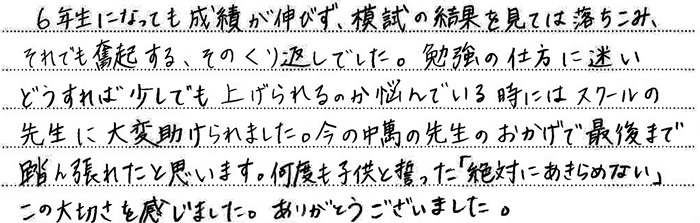 6年生になっても成績が伸びず、模試の結果を見ては落ちこみ、
それでも奮起する、そのくり返しでした。勉強の仕方に迷い
どうすれば少しでも上げられるのか悩んでいる時にはスクールの
先生に大変助けられました。今の中萬の先生のおかげで最後まで
踏ん張れたと思います。何度も子供と誓った「絶対にあきらめない」
この大切さを感じました。ありがとうございました。